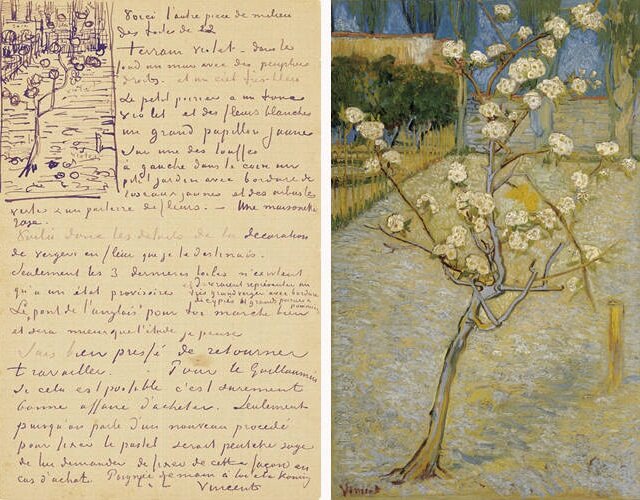 Voici l'autre pièce de milieu
des toiles de 12
terrain violet – dans le
fond un mur avec des peupliers
droits. et un ciel très bleu
Le petit poirier a un tronc
violet et des fleurs blanches
un grand papillon jaune
sur une des touffes
à gauche dans le coin un
petit jardin avec bordure de
roseaux jaunes et des arbustes
verts & un parterre de fleurs. – Une maisonette
rose.
Voilà donc les détails de la décoration
de vergers en fleur que je te destinais.
Seulement les 3 dernières toiles n'existent
qu'à un état provisoire
& devraient représenter un
très grand verger avec bordure
de cyprès & grands poiriers &
pommiers
Le pont de l'anglais pour toi marche bien
et sera mieux que l'étude je pense
Suis bien pressé de retourner
travailler. – Pour le Guillaumin
si cela est possible c'est surement
bonne affaire d'acheter. Seulement
puisqu'on parle d'un nouveau procédé
pour fixer le pastel serait peutetre sage
de lui demander de fixer de cette façon en
cas d'achat. Poignée de main à toi et à Koning
t. à t. Vincent
Vincent